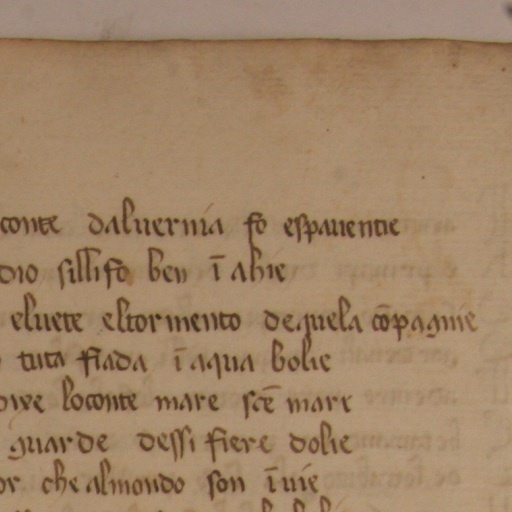 conte daluernia fo espauentie
dio sillifo ben ī abie
eluete eltormento dequela cōpagnie
tuta fiada ī aqua bolie
loconte mare scē mari
guarde dessi fiere dolie
or che almondo son ī uie